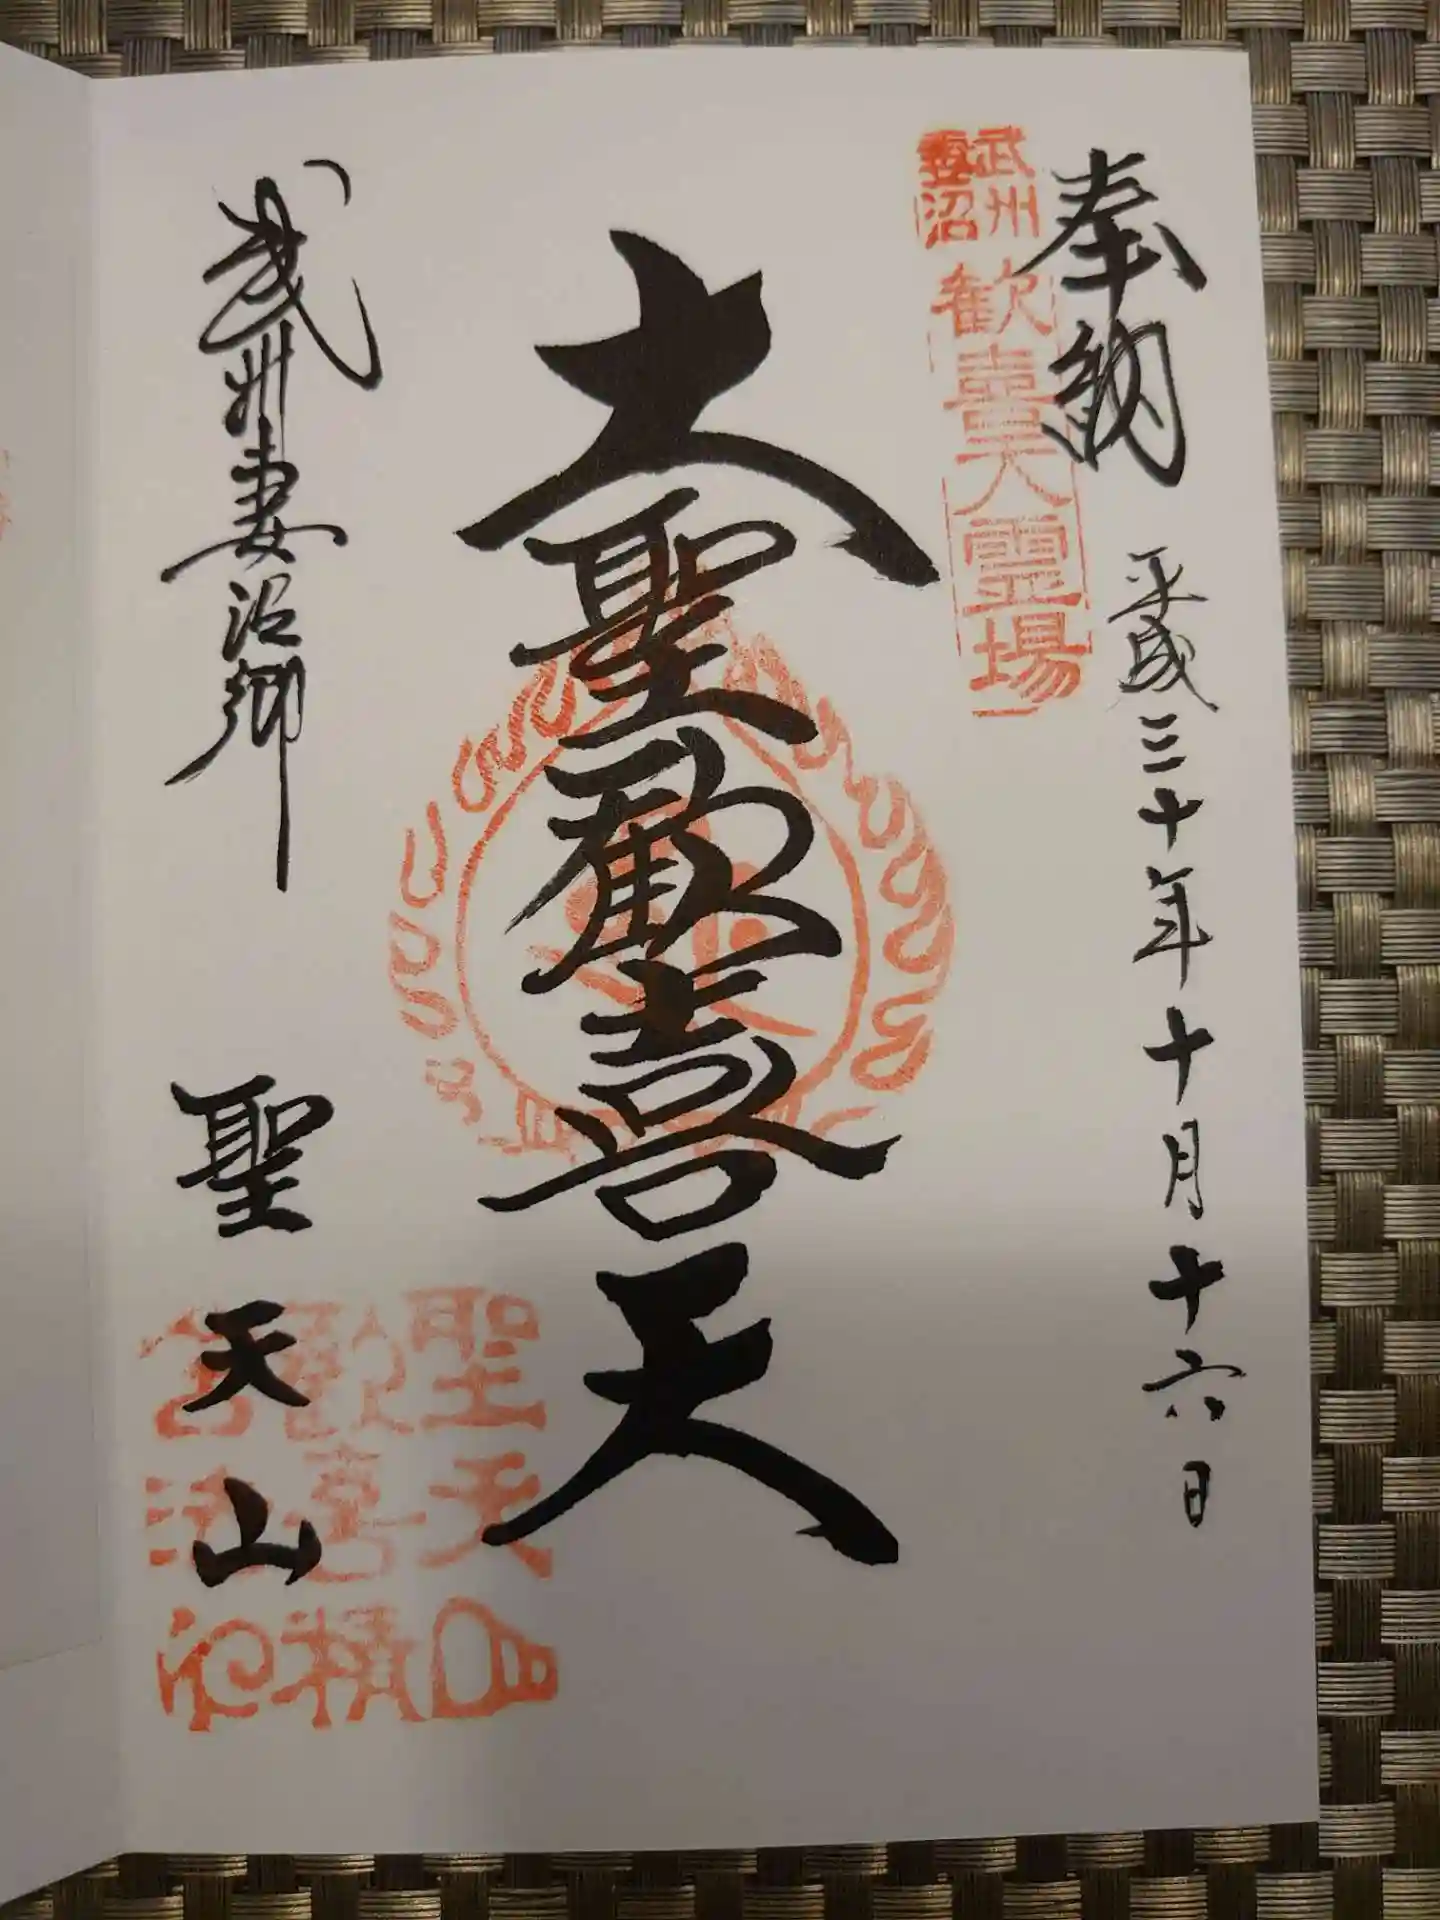 奉納 平成三十年十月十六日
武州
妻沼
歓喜天霊場
大聖歓喜天
武州妻沼郷 聖天山
聖天山
歓喜